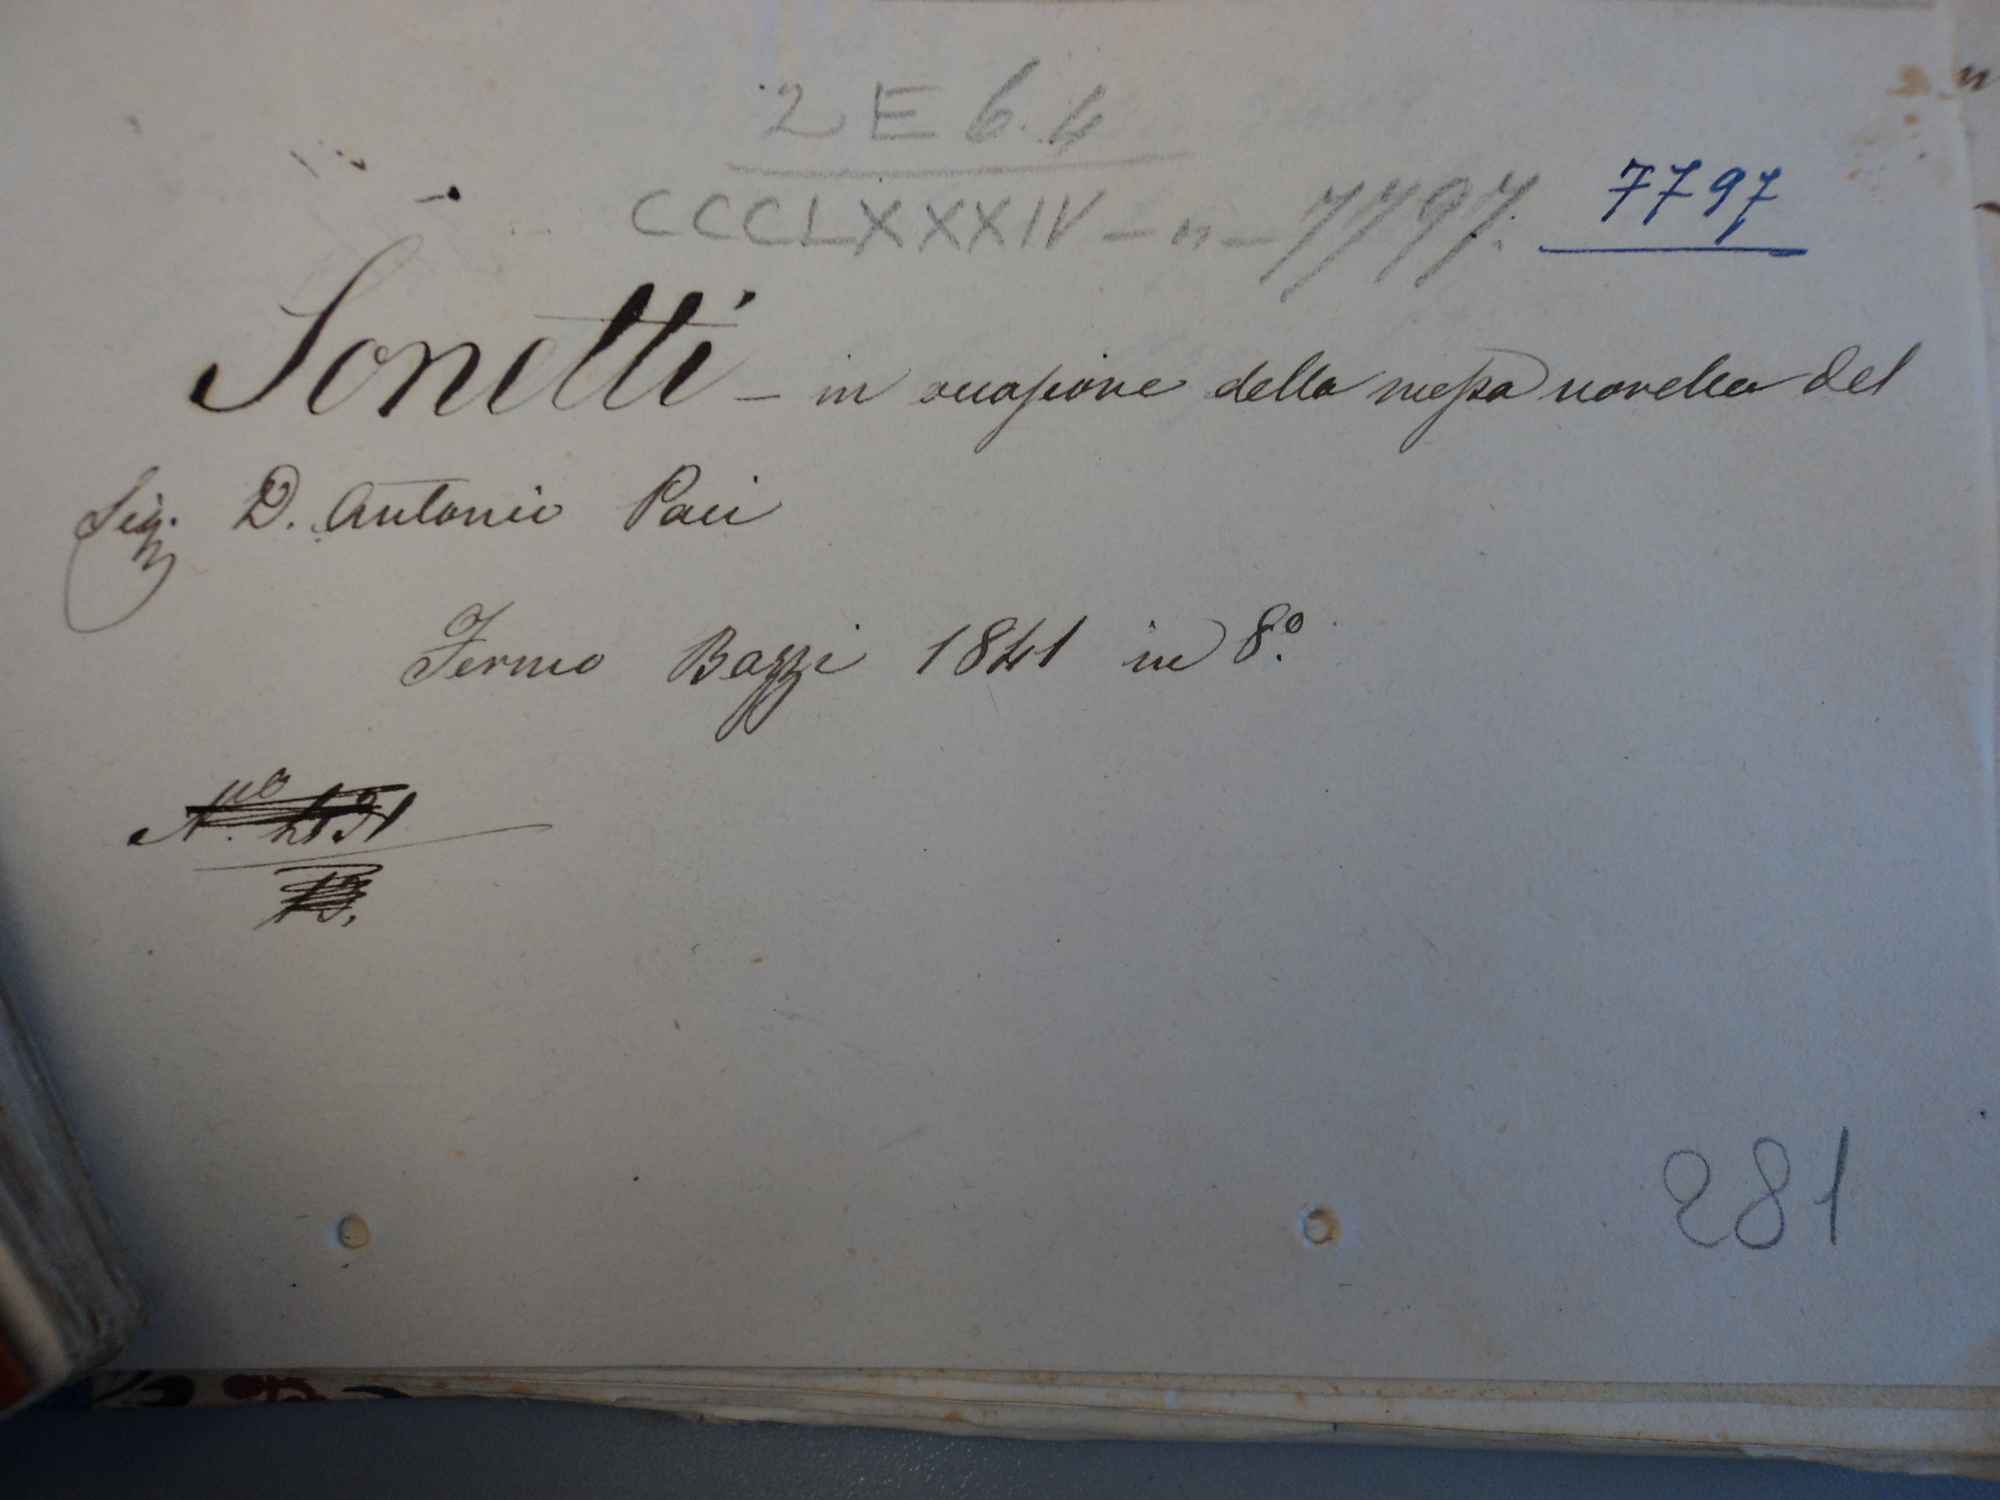 2 E 6.4
CCCLXXXIV - n - 7797. 7797
Sonetti - in occasione della messa novella del
Sig. D. Antonio Paci
Fermo Bazzi 1841 in 8º.
281